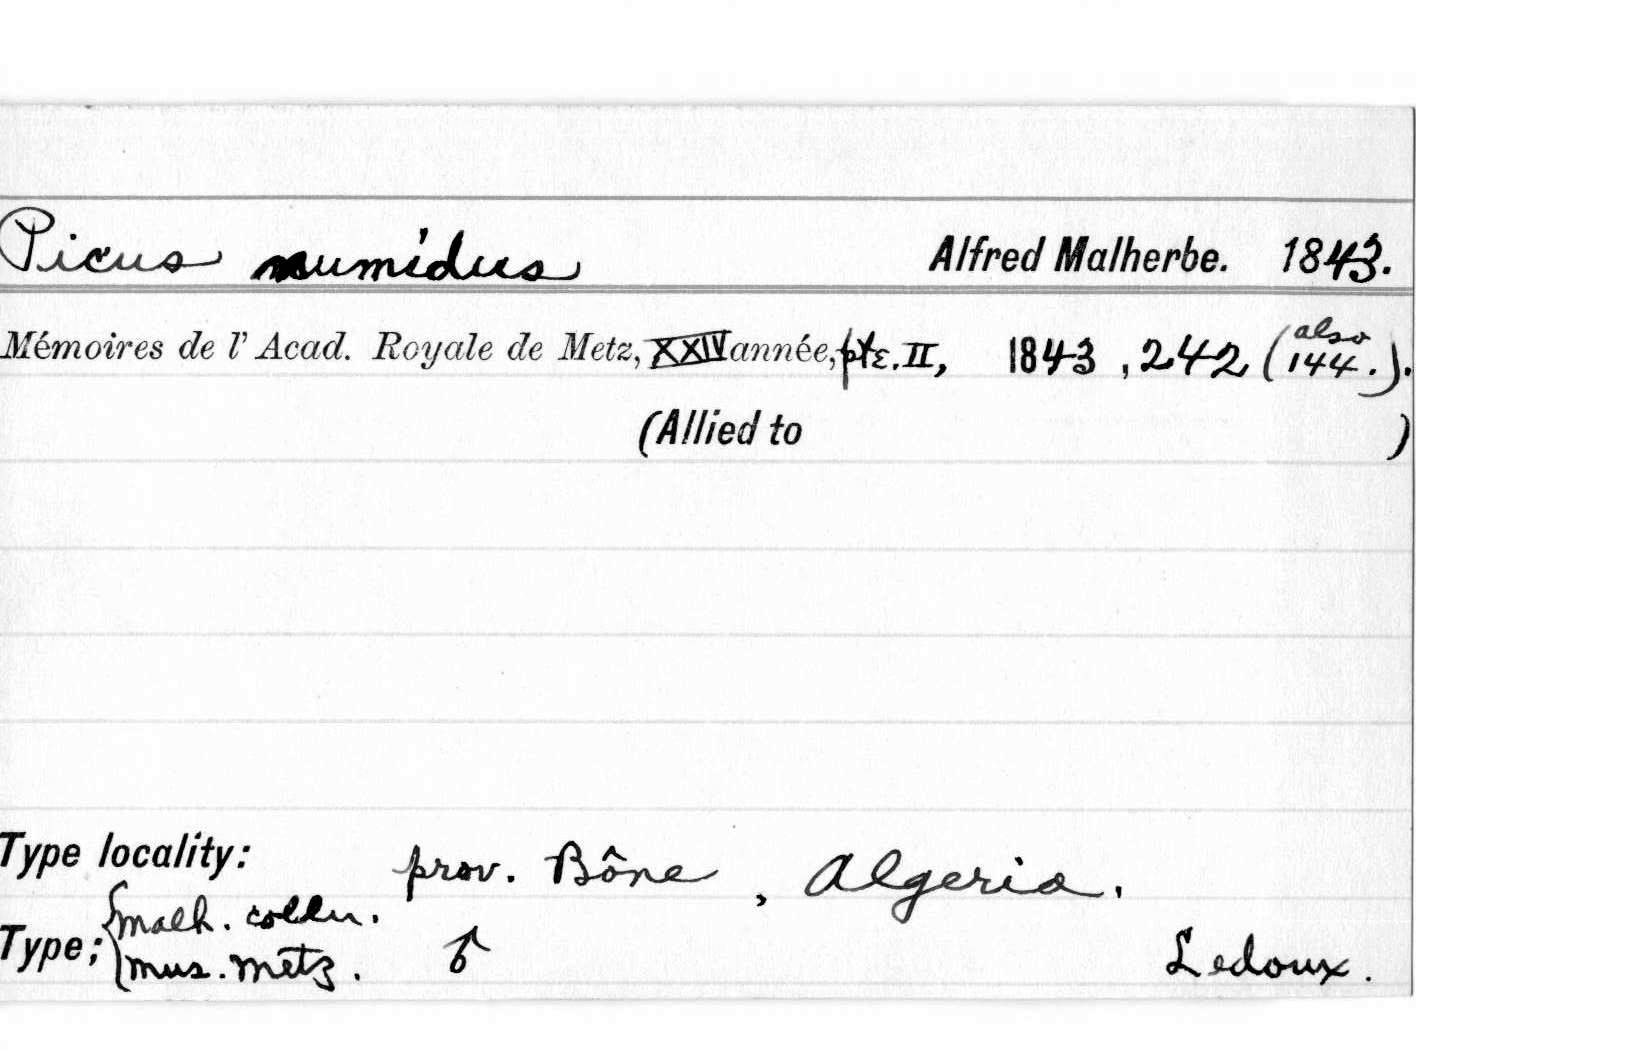 Picus numidus Alfred Malherbe. 1843.
Mémoires de l'Acad. Royale de Metz, XXIV année, pte. II, 1843, 242 (also 144.).
(Allied to )
Type locality: prov. Bône, Algeria.
Type; {Malh. colln.
mus. Metz. ♂ Ledoux.